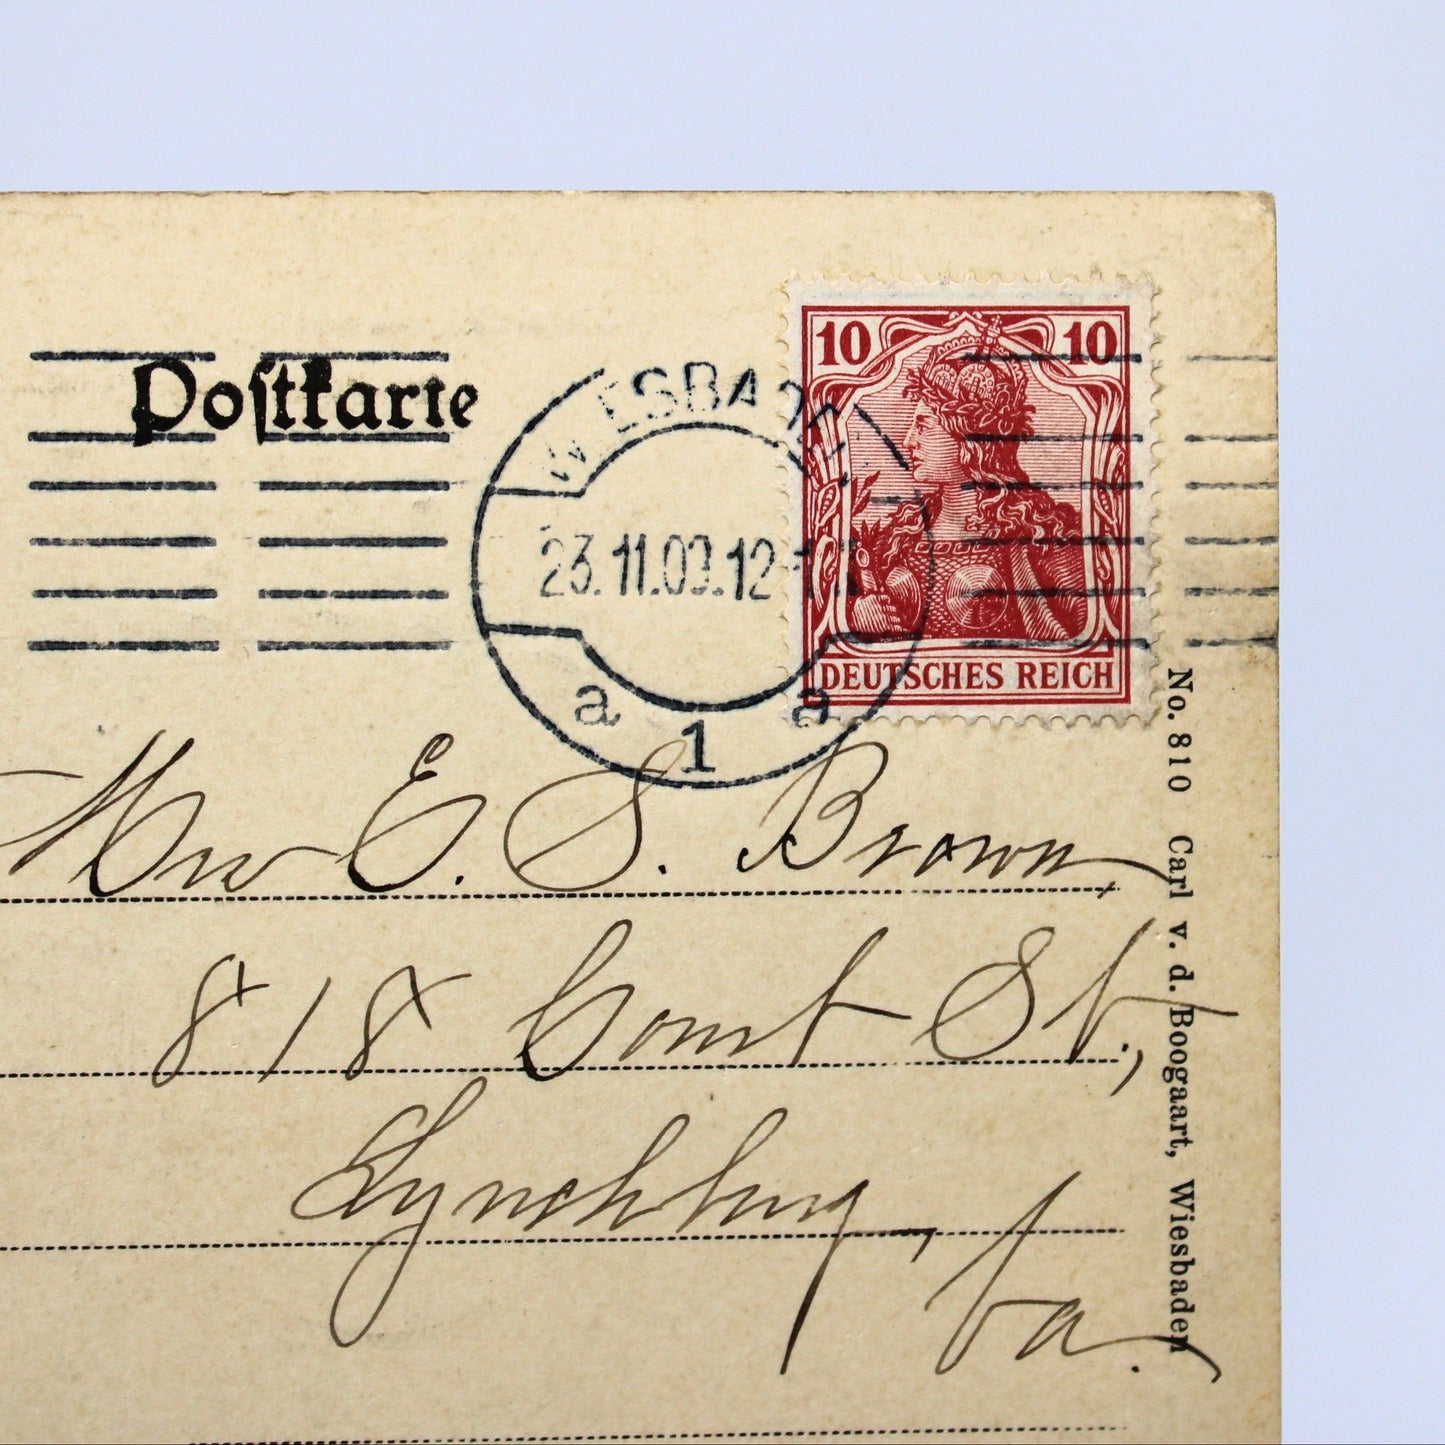 Postkarte
WIESBADEN
23.11.09.12-1N
a 1 a
10 10
DEUTSCHES REICH
Mrs E. S. Brown,
818 Court St.,
Lynchburg,
Va.
No. 810 Carl v. d. Boogaart, Wiesbaden